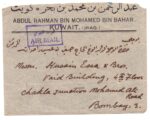 عبد الرحمن بن محمد بن بحر - كويت
ABDUL RAHMAN BIN MOHAMED BIN BAHAR
KUWAIT. (IRAQ.)
AIR MAIL
Messrs. Hussain Essa & Bros.
Vaid Building, 4th Floor
Chakla Junction Mohamed Ali
Road
Bombay 3.